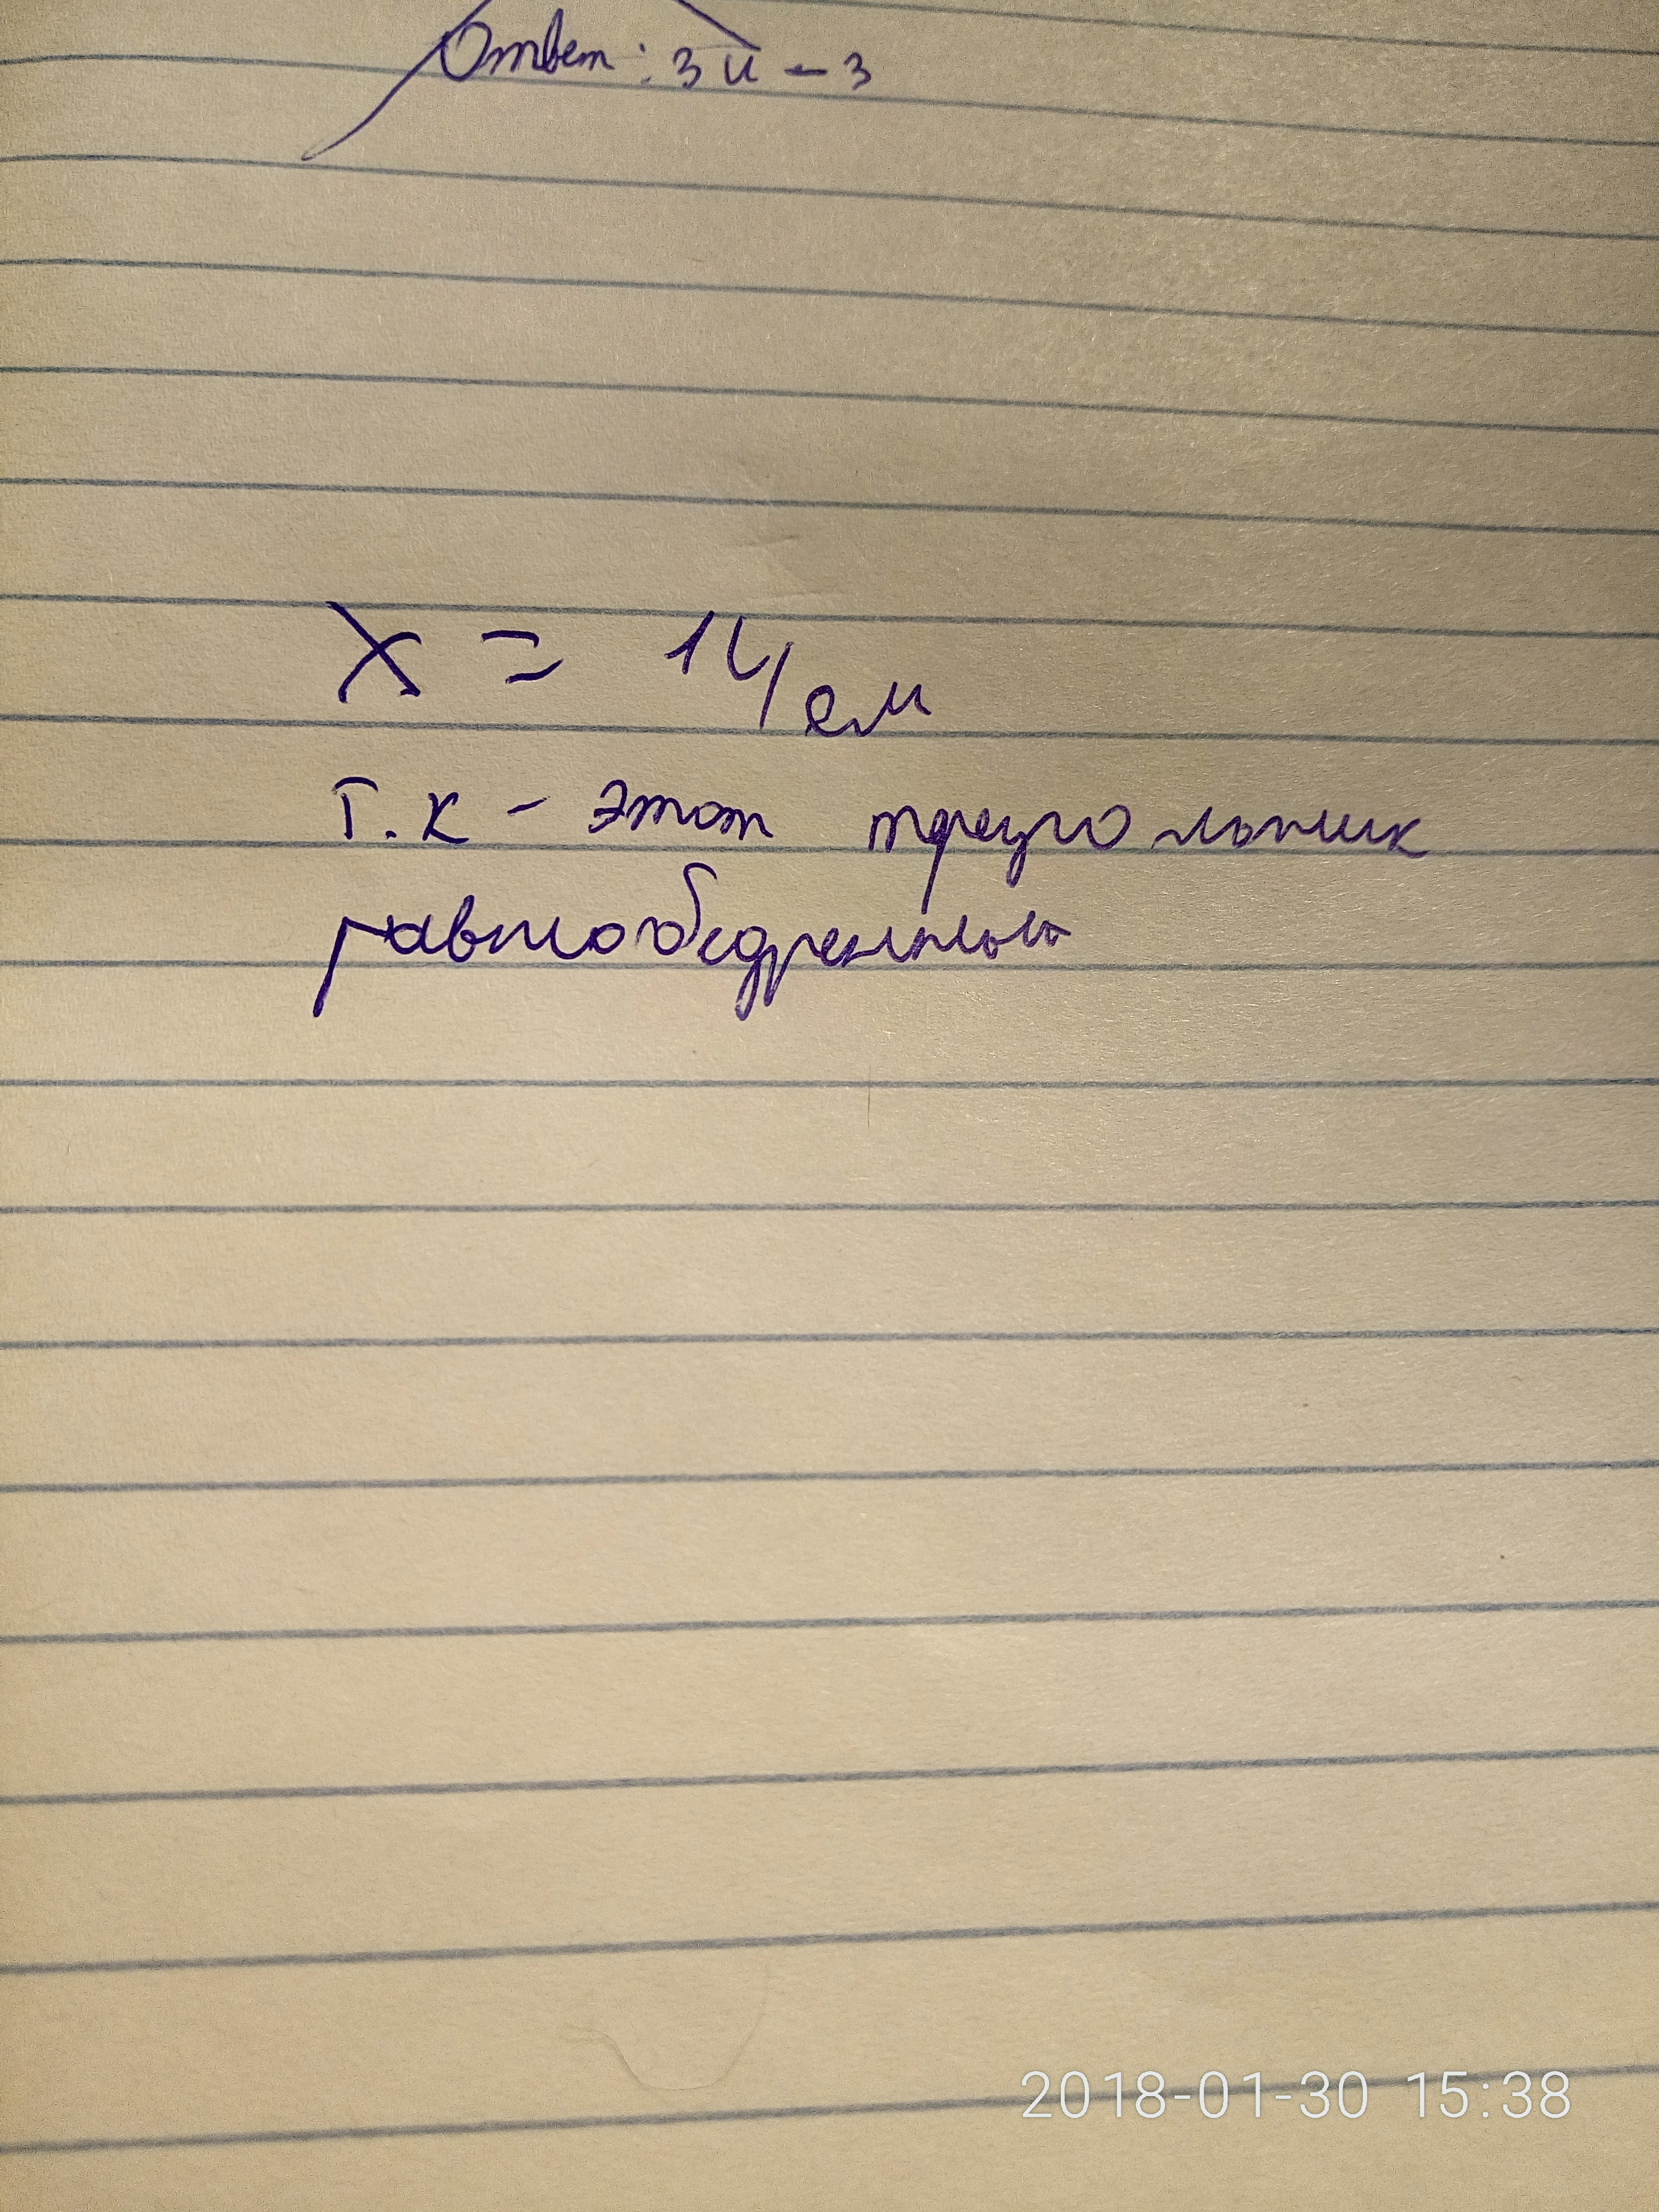 Ответ: 3 и -3
X = 14 см
Т.к - этот треугольник
равнобедренный
2018-01-30 15:38